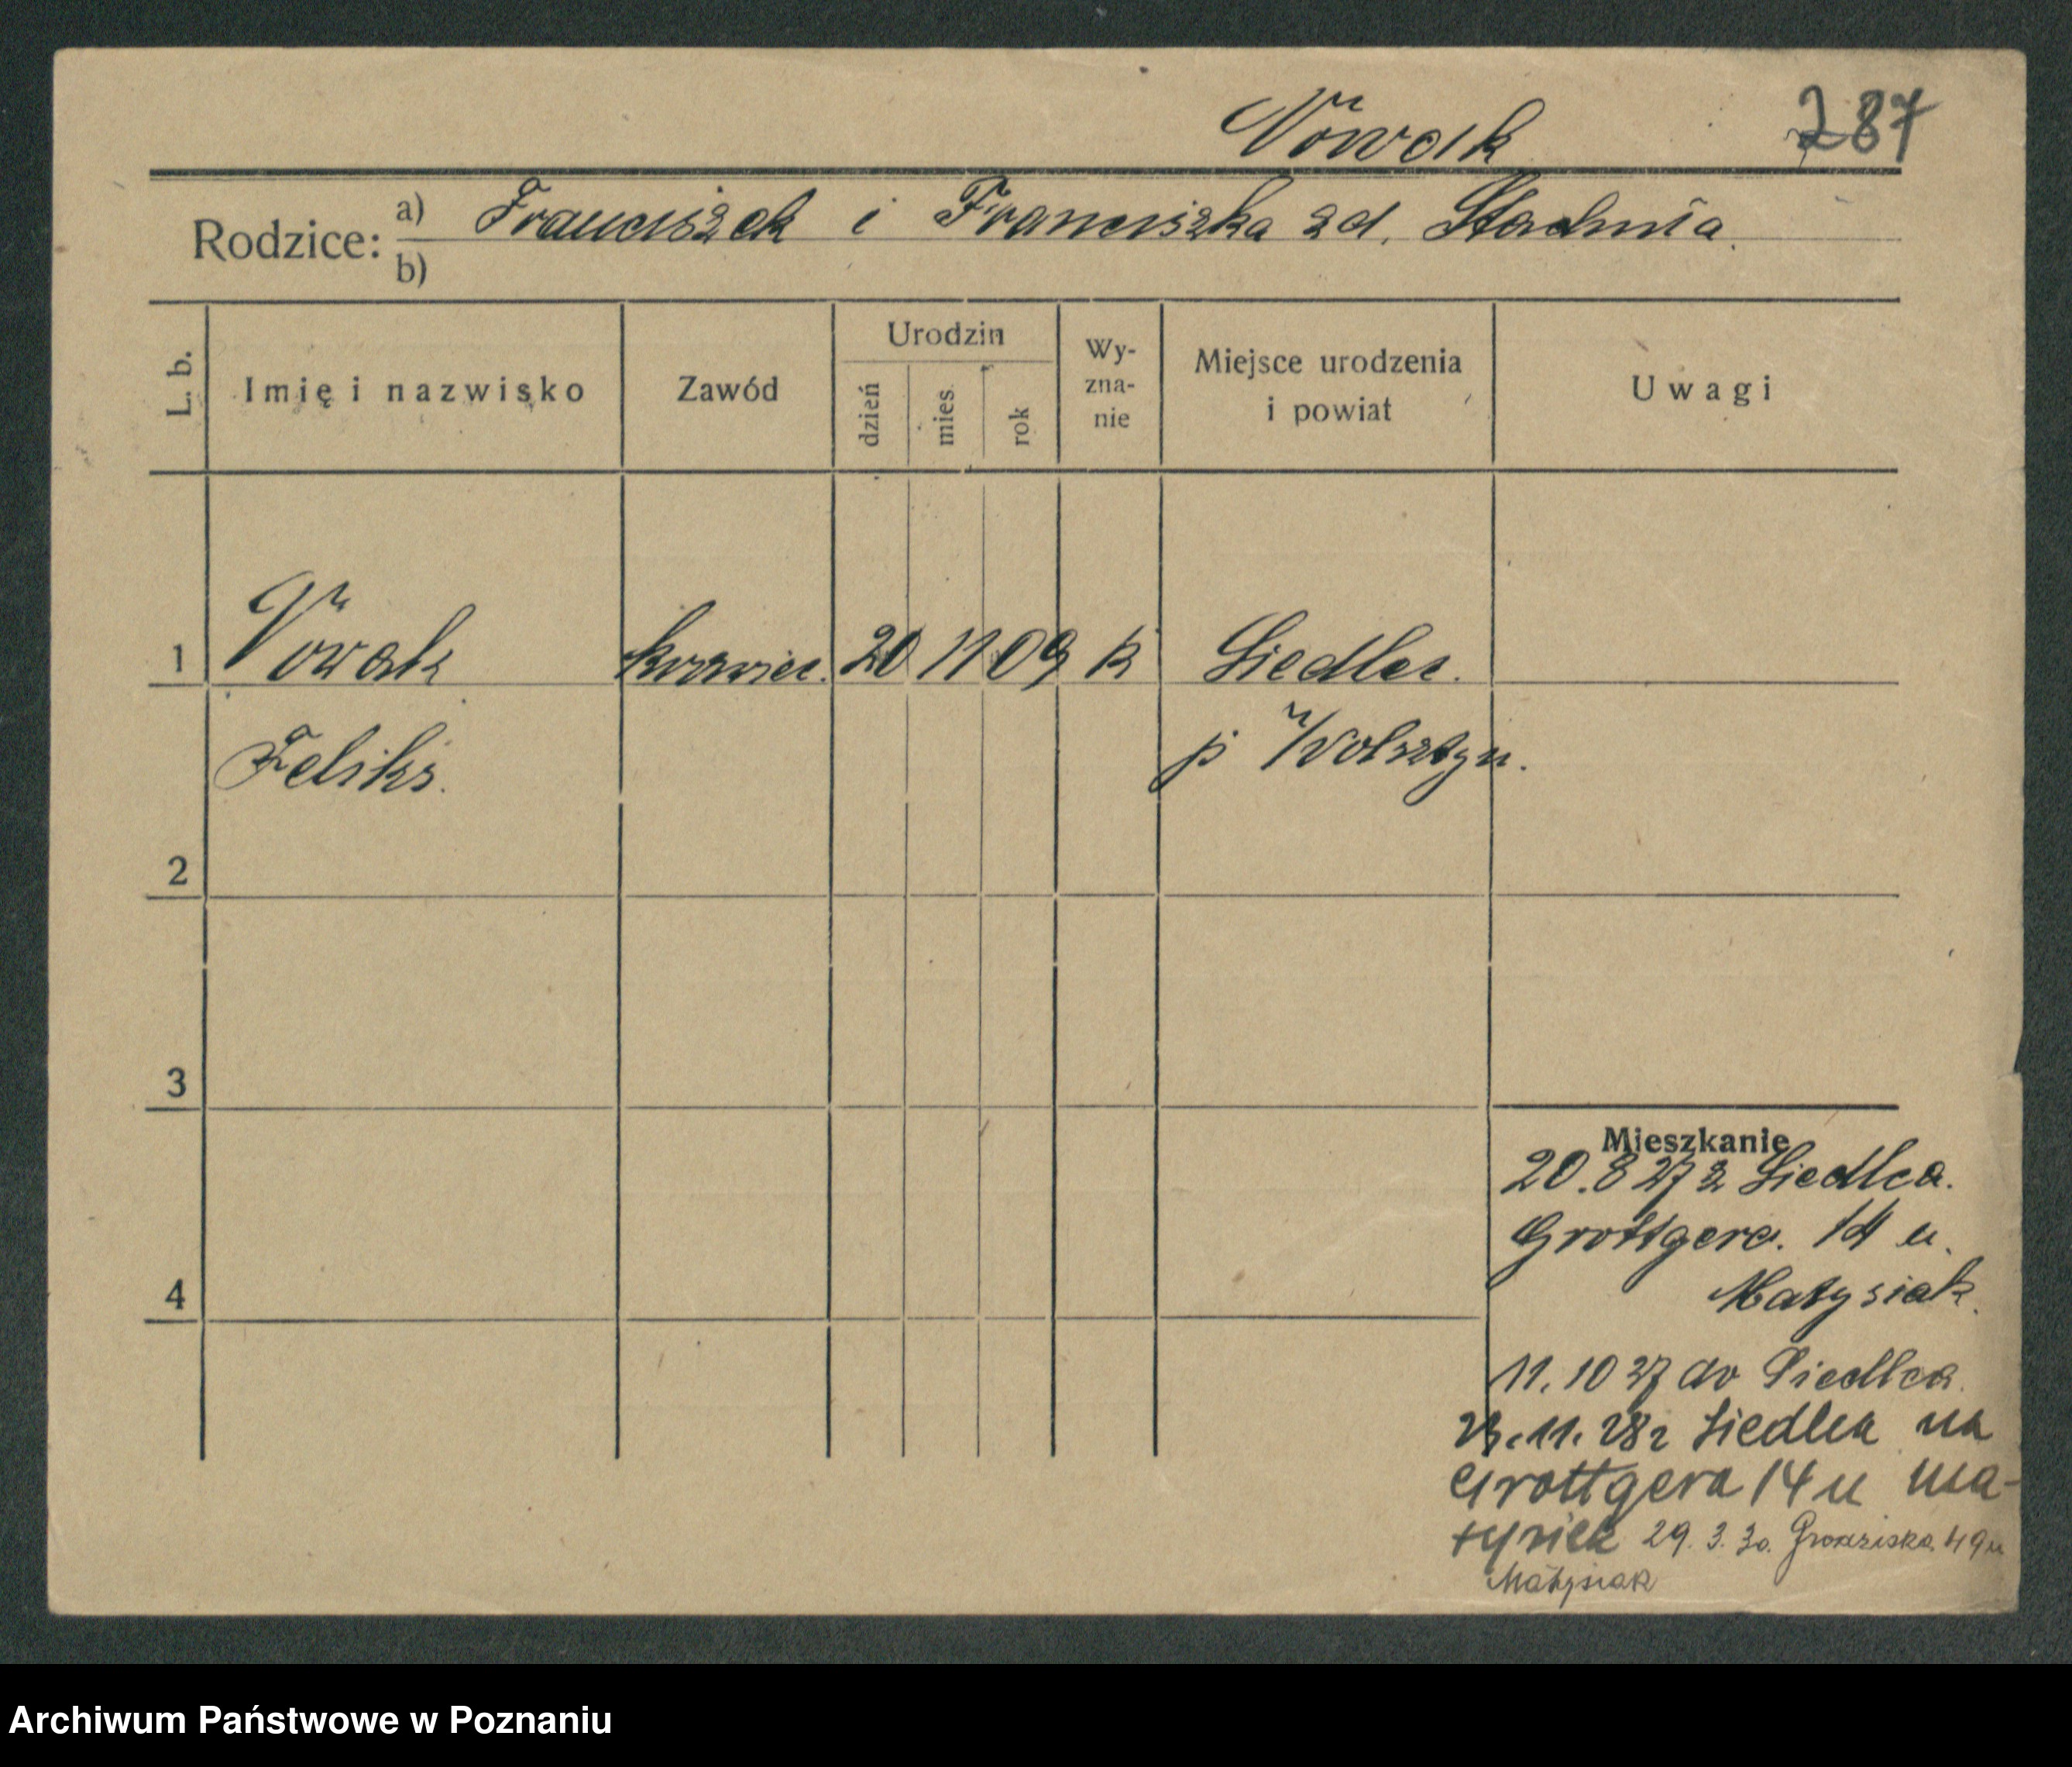 Nowak 287
Rodzice: a) Franciszek i Franciszka zd. Stachnia
b)
L. b. Imię i nazwisko Zawód Urodzin dzień mies. rok Wy-
zna-
nie Miejsce urodzenia
i powiat Uwagi
1 Nowak krawiec. 20 11 09 k Siedlec.
Feliks. p Wolsztyn.
2
3
4
Mieszkanie
20.8 27 z Siedlca.
Grottgera. 14 u.
Matysiak.
11.10 27 do Siedlca.
11. 28 z Siedlca na
Grottgera 14 u Ma-
tysiek 29. 3. 30. Grodziska 49 u
Matysiak
Archiwum Państwowe w Poznaniu